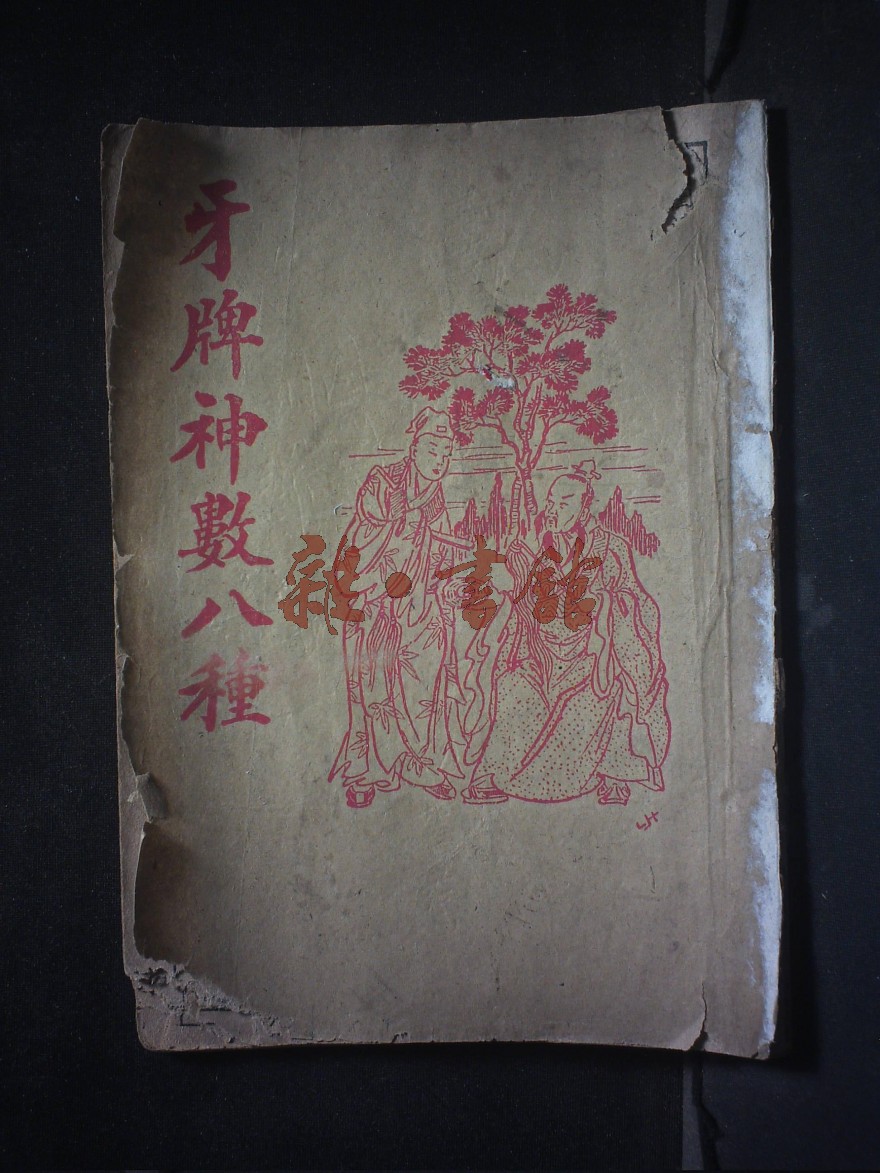 牙牌神數八種
雜·書館